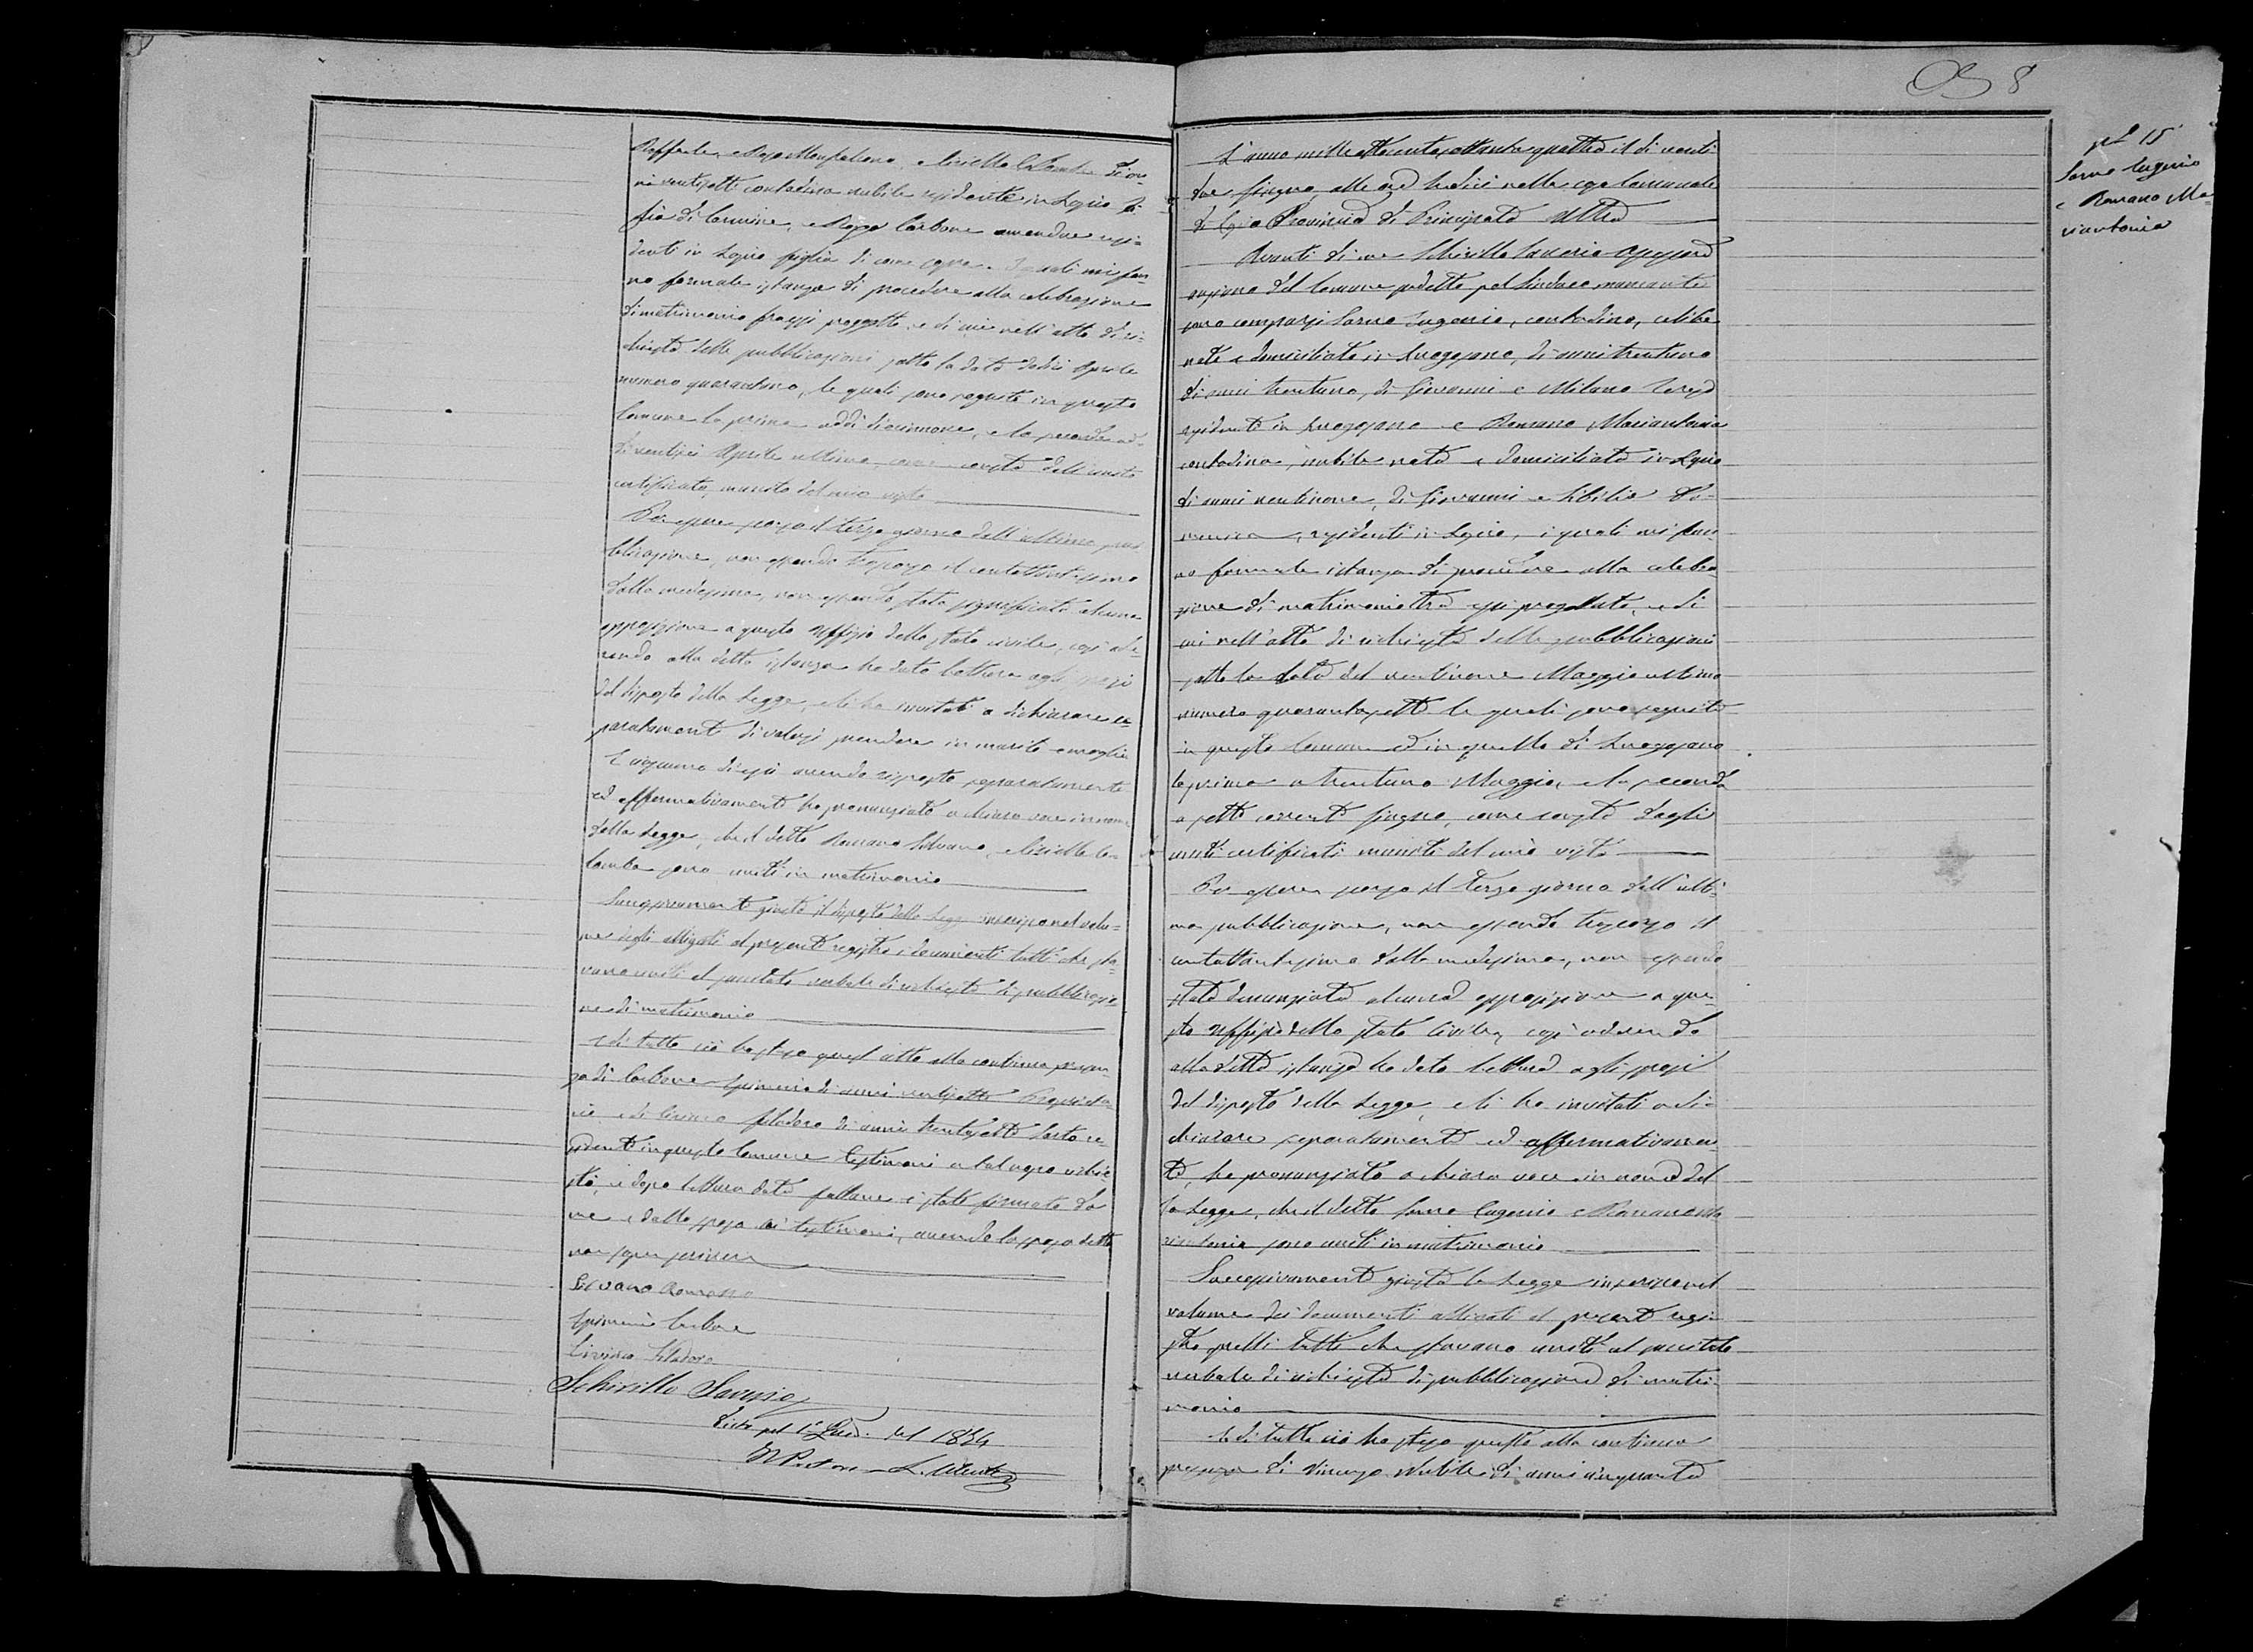 Raffaele, e Rosa Monteleone, e Liriella Colomba di an-
ni ventisette contadina nubile residente in Lapio fi-
glia di Carmine, e Rosa Carbone amendue resi-
denti in Lapio figlia di come sopra, i quali mi fan-
no formale istanza di procedere alla celebrazione
di matrimonio fra essi progettato, e di cui nell'atto di ri-
chiesta delle pubblicazioni sotto la data Aprile
numero quarantuno, le quali sono seguite in questo
Comune la prima addì diciannove, e la seconda ad-
dì ventisei Aprile ultimo, come consta dall'unito
certificato, munito del mio visto
Per essere scorso il terzo giorno dell'ultima pub
blicazione, non essendo trascorso il centottantesimo
dalla medesima, non essendo stata significata alcuna
opposizione a questo Uffizio dello stato civile, così ade-
rendo alla detta istanza ho dato lettura agli sposi
del disposto della Legge, e li ho invitati a dichiarare se-
paratamente di volersi prendere in marito e moglie
E ciascuno di essi avendo risposto separatamente
ed affermativamente ho pronunziato a chiara voce in nome
della Legge, che il detto Romano Silvano, e Liriella Co-
lomba sono uniti in matrimonio
Successivamente giusta il disposto della Legge inserisco nel volu-
me degli alligati al presente registro, i documenti tutti che sta-
vano uniti al succitato verbale di richiesta di pubblicazio
ne di matrimonio
E di tutto ciò ho steso quest'atto alla continua presen-
za di Carbone di anni ventisette Proprieta-
rio e di Filadoro di anni trentasette Sarto re-
sidenti in questo Comune testimoni a tal uopo richie
sti, e dopo lettura data fattane è stato firmato da
me e dallo sposo ai testimoni, avendo la sposa detto
non saper scrivere
Silvano Romano
Carbone
Filadoro
Schirillo Saverio
Visto pel 1° Quad. del 1884
Il Pretore
8
L'anno mille ottocento ottanta quattro il dì venti
due Giugno, alle ore tredici nella casa Comunale
di Lapio Provincia di Principato Ultra
Avanti di me Schirillo Saverio Assessore
anziano del Comune sudetto pel Sindaco mancante
sono comparsi Sarno Eugenio, contadino, celibe
nato e domiciliato in Luogosano, di anni trentuno
di anni trentuno, di Giovanni e Milano Teresa
residente in Luogosano e Romano Mariantonia
contadina, nubile nata e domiciliata in Lapio
di anni ventinove, di Giovanni e Sibilia Do-
menica, residenti in Lapio, i quali mi fan-
no formale istanza di procedere alla celebra-
zione di matrimonio tra essi progettato, e di
cui nell'atto di richiesta delle pubblicazioni
sotto la data del ventinove Maggio ultimo
numero quarantasette le quali sono seguite
in questo Comune ed in quello di Luogosano
la prima a trentuno Maggio, e la seconda
a sette corrente Giugno, come consta dagli
uniti certificati muniti del mio visto
Per essere scorso il terzo giorno dell'ulti-
ma pubblicazione, non essendo trascorso il
centottantesimo dalla medesima, non essendo
stata denunziata alcuna opposizione a que-
sto Uffizio dello stato Civile, così aderendo
alla detta istanza ho dato lettura agli sposi
del disposto della Legge, e li ho invitati a di-
chiarare separatamente ed affermativamen-
te, ho pronunziato a chiara voce in nome del
la Legge, che il detto Sarno Eugenio e Romano Ma
riantonia sono uniti in matrimonio
Successivamente giusta la Legge inserisco nel
volume dei documenti alligati al presente regi-
stro quelli tutti che stavano uniti al succitato
verbale di richiesta di pubblicazione di matri-
monio
E di tutto ciò ho steso questo alla continua
presenza di Vincenzo Nubile di anni cinquanta
N° 15
Sarno Eugenio
e Romano Ma-
riantonia